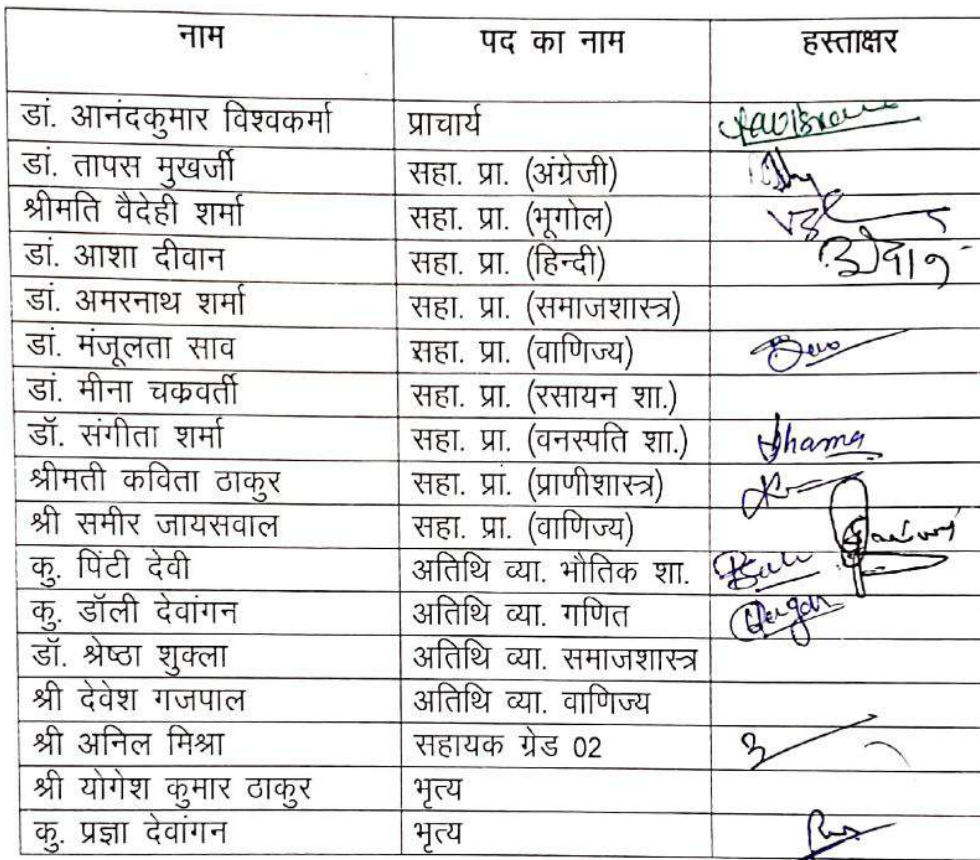 नाम पद का नाम हस्ताक्षर
डां. आनंदकुमार विश्वकर्मा प्राचार्य
डां. तापस मुखर्जी सहा. प्रा. (अंग्रेजी)
श्रीमति वैदेही शर्मा सहा. प्रा. (भूगोल)
डां. आशा दीवान सहा. प्रा. (हिन्दी)
डां. अमरनाथ शर्मा सहा. प्रा. (समाजशास्त्र)
डां. मंजूलता साव सहा. प्रा. (वाणिज्य)
डां. मीना चकवर्ती सहा. प्रा. (रसायन शा.)
डॉ. संगीता शर्मा सहा. प्रा. (वनस्पति शा.)
श्रीमती कविता ठाकुर सहा. प्रां. (प्राणीशास्त्र)
श्री समीर जायसवाल सहा. प्रा. (वाणिज्य)
कु. पिंटी देवी अतिथि व्या. भौतिक शा.
कु. डॉली देवांगन अतिथि व्या. गणित
डॉ. श्रेष्ठा शुक्ला अतिथि व्या. समाजशास्त्र
श्री देवेश गजपाल अतिथि व्या. वाणिज्य
श्री अनिल मिश्रा सहायक ग्रेड 02
श्री योगेश कुमार ठाकुर भृत्य
कु. प्रज्ञा देवांगन भृत्य